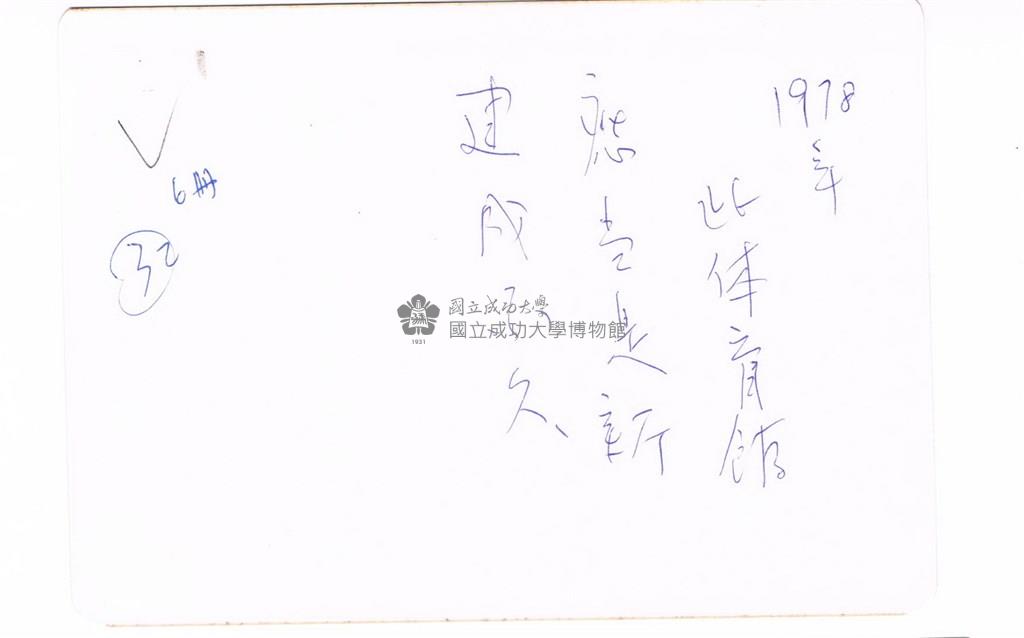 1978年
此体育館
應当是新
建成不久、
6冊
32
國立成功大學
國立成功大學博物館
1931